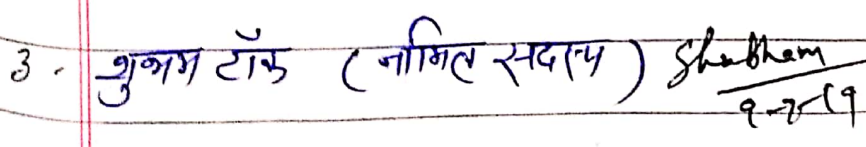 3. शुभम टाँक (नामित सदस्य) Shubham